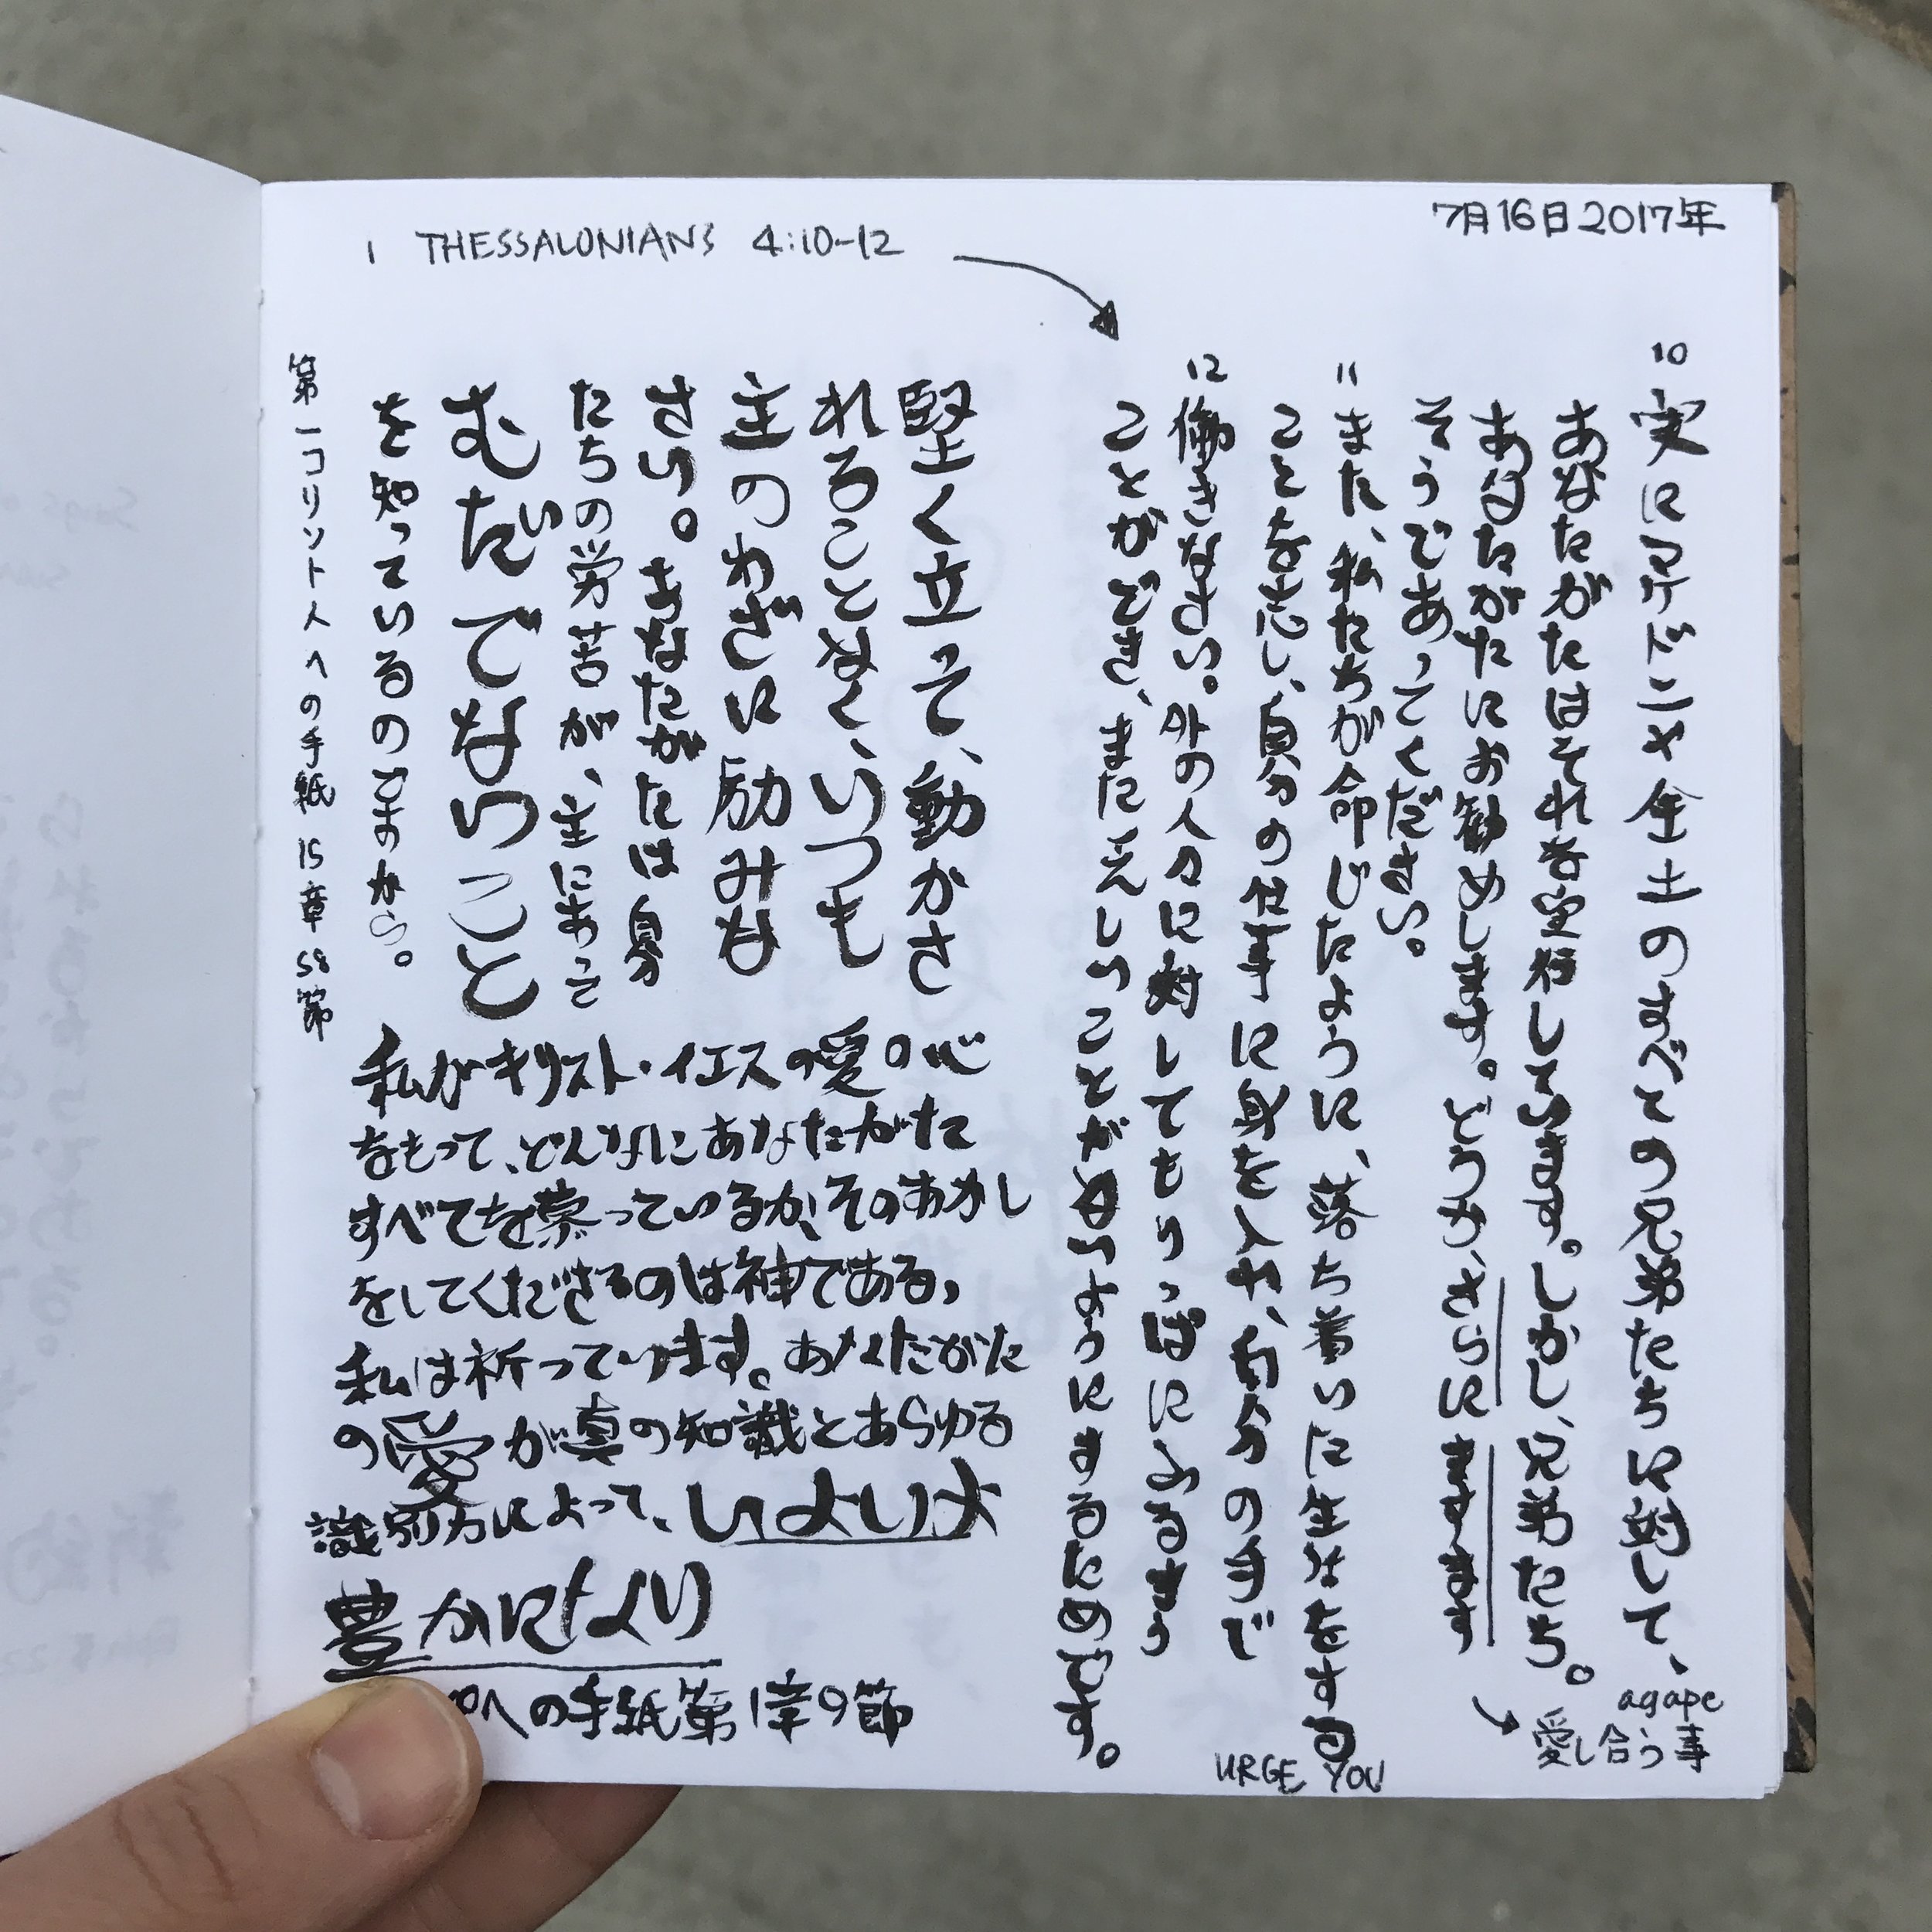 7月16日2017年
1 THESSALONIANS 4:10-12
10 実にマケドニヤ全土のすべての兄弟たちに対して、
あなたがたはそれを実行しています。しかし、兄弟たち。
あなたがたにお勧めします。どうか、さらにますます
そうであってください。
11 また、私たちが命じたように、落ち着いた生活をする
ことを志し、自分の仕事に身を入れ、自分の手で
12 働きなさい。外の人々に対してもりっぱにふるまう
ことができ、また乏しいことがないようにするためです。
agape
愛し合う事
URGE YOU
堅く立って、動かさ
れることなく、いつも
主のわざに励みな
さい。あなたがたは自分
たちの労苦が、主にあって
むだでないこと
を知っているのですから。
第一コリント人への手紙 15章58節
私がキリスト・イエスの愛の心
をもって、どんなにあなたがた
すべてを慕っているか、そのあかし
をしてくださるのは神である,
私は祈っています。あなたがた
の愛が真の知識とあらゆる
識別力によって、いよいよ
豊かになり
への手紙第1章9節